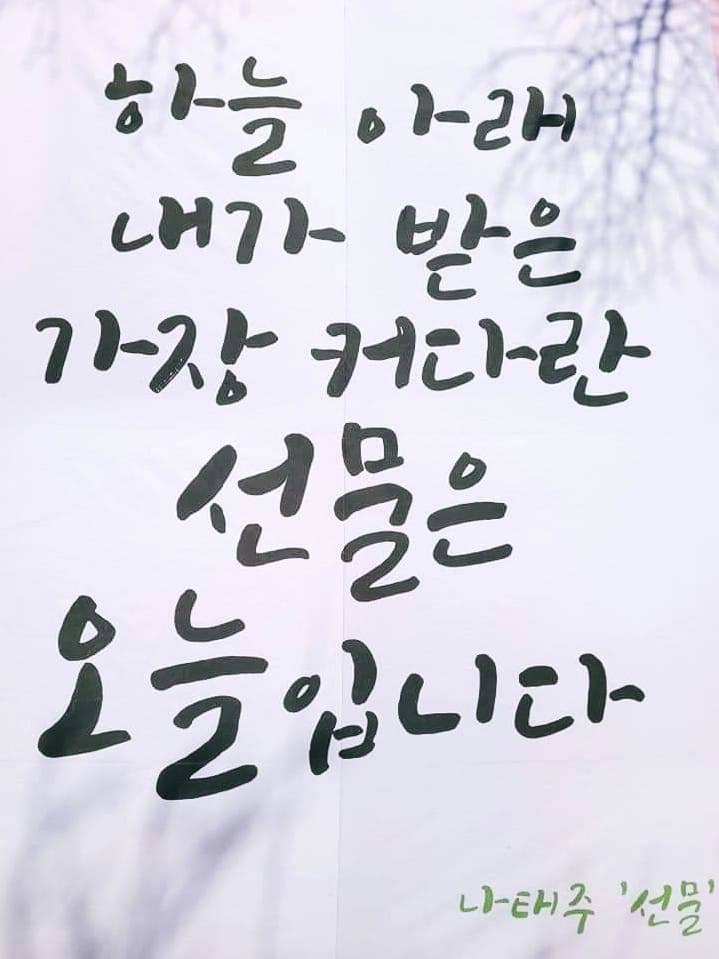 하늘 아래
내가 받은
가장 커다란
선물은
오늘입니다
나태주 '선물'